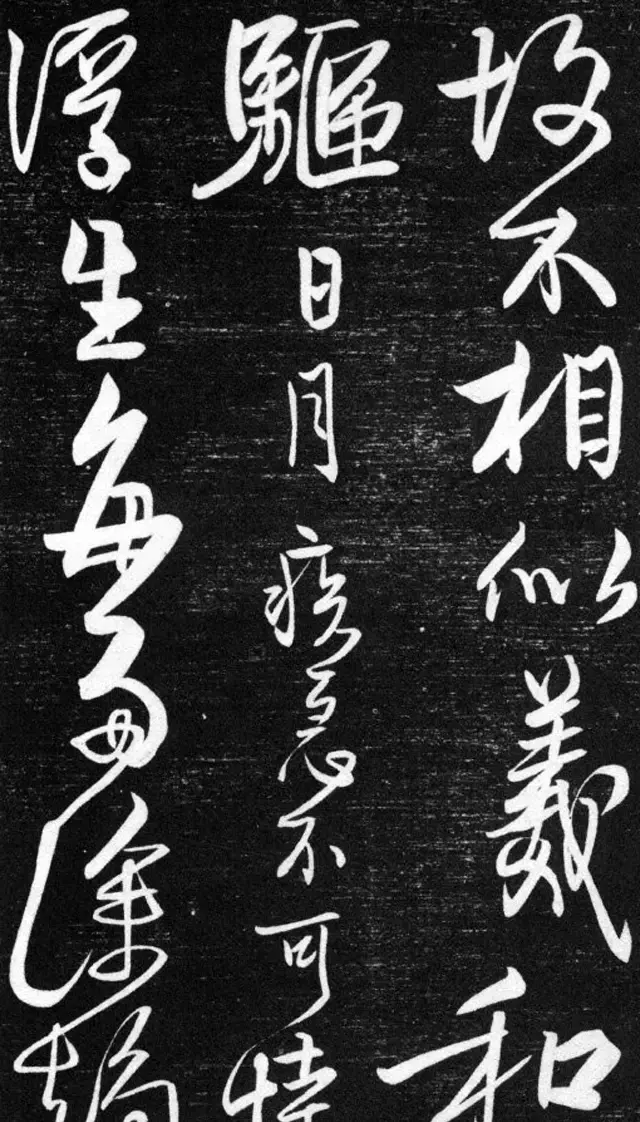 故不相似羲和
驅日月疾急不可恃
浮生雖多涂趨